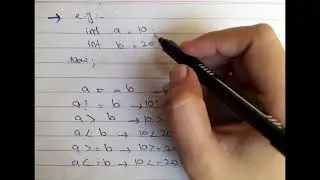 → e.g:-
int a = 10;
int b = 20
Now;
a = = b
a! = b → 10!
a > b → 10 >
a < b → 10 < 20
a > = b → 10 > = 20
a < = b → 10 < = 20